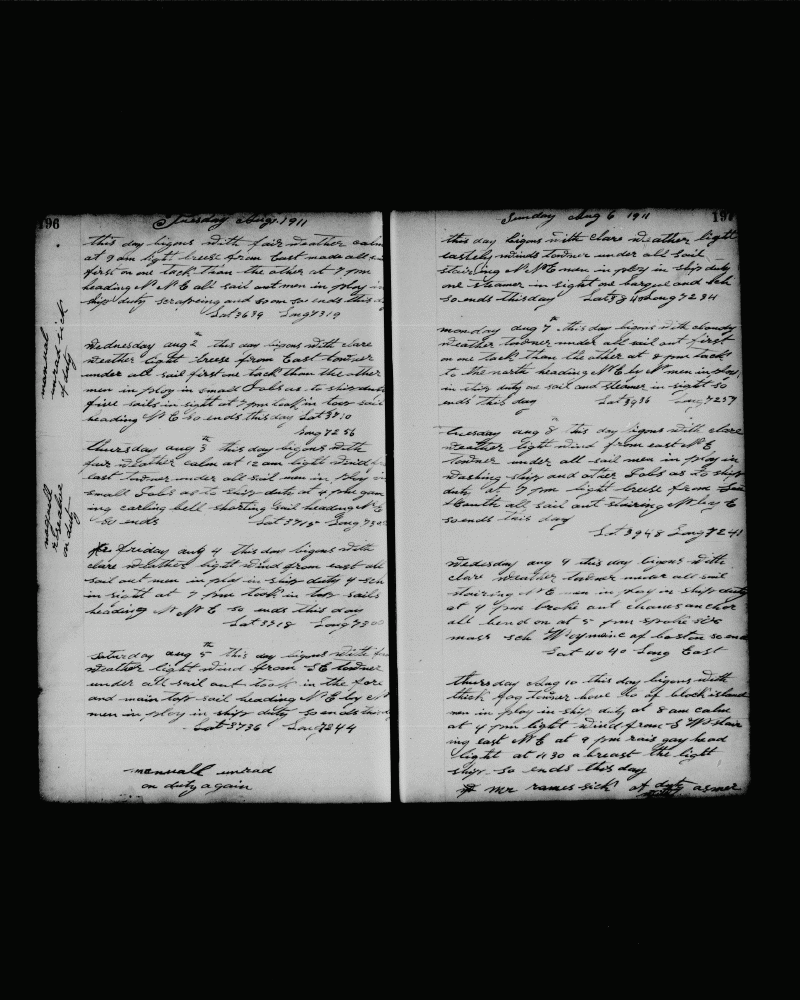 196
Tuesday Aug 1. 1911
this day bigons with fair weather calm
at 9 am light breese from East made all
first on one tack than the other at 7 pm
heading N N E all sail out men in ploy in
ship duty scrapeing and so on so ends this
Lat 3639 Long 7319
manuall
unirad sick
of duty
Wednesday aug 2th this day bigons with clare
weather light breese from East
under all sail first one tack than the other
men in ploy in small Jobs as to ship duty
five sails in sight at 7 pm took in tow sail
heading N E so ends this day Lat 3710
Long 7256
thursday aug 3th this day bigons with
fair weather calm at 12 am light wind
East towner under all sail men in ploy in
small Jobs as to ship duty at 4 pm
ing bell sail heading N E
so ends Lat 3718 Long
on duty
friday aug 4 this day bigons with
clare weather light wind from east all
sail out men in ploy in ship duty 4 sch
in sight at 7 pm took in top sails
heading N N E so ends this day
Lat 3718 Long
saturday aug 5th this day bigons with
weather light wind from SE towner
under all sail out took in the fore
and main top sail heading N E by N
men in ploy in ship duty so ends this
Lat 3736 Long 7244
manuall unirad
on duty again
Sunday Aug 6 1911
197
this day bigons with clare weather light
easterly winds towner under all sail
stairing N N E men in ploy in ship duty
one steamer in sight one barge and sch
so ends this day Lat Long 7234
monday aug 7th this day bigons with cloudy
weather towner under all sail out first
on one tack than the other at 8 pm tack
to the north heading N E by N men in ploy
in ship duty one sail and steamer in sight so
ends this day Lat 3936 Long 7257
tuesday aug 8th this day bigons with clare
weather light wind from east N E
towner under all sail men in ploy in
washing ship and other Jobs as to ship
duty at 7 pm light breese from
South all sail out stairing N by E
so ends this day
Lat 3948 Long 7241
Wednesday aug 9 this day bigons with
clare weather towner under all sail
stairing N E men in ploy in ship duty
at 4 pm broke out chains anchor
all bend on at 5 pm spoke six
mast sch of boston so ends
Lat 40 40 Long East
thursday Aug 10 this day bigons with
thick fog towner hove to of block island
men in ploy in ship duty at 8 am calm
at 4 pm light wind from S W stair
ing east N E at 9 pm rais gay head
light at 11 30 a breast the light
ship. so ends this day
mr rames sick of duty